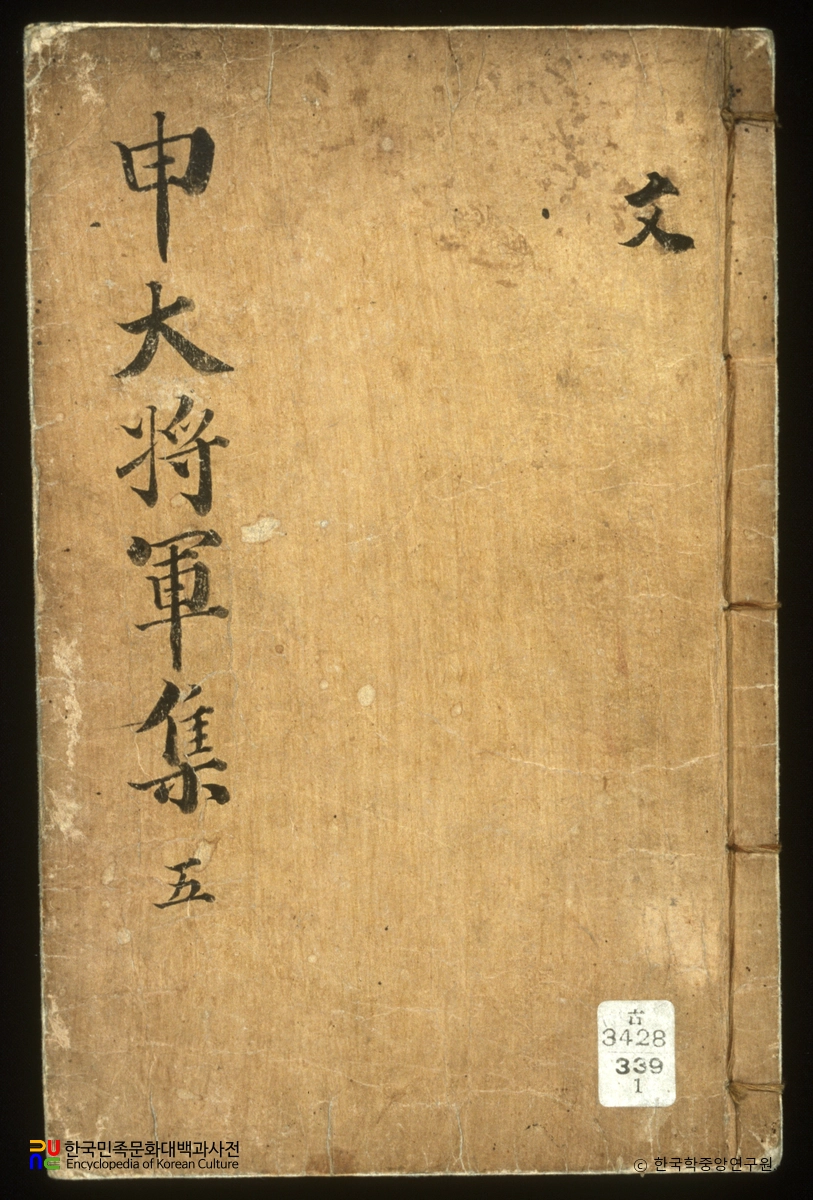 文
申大將軍集 五
古
3428
339
1
한국민족문화대백과사전
Encyclopedia of Korean Culture
© 한국학중앙연구원